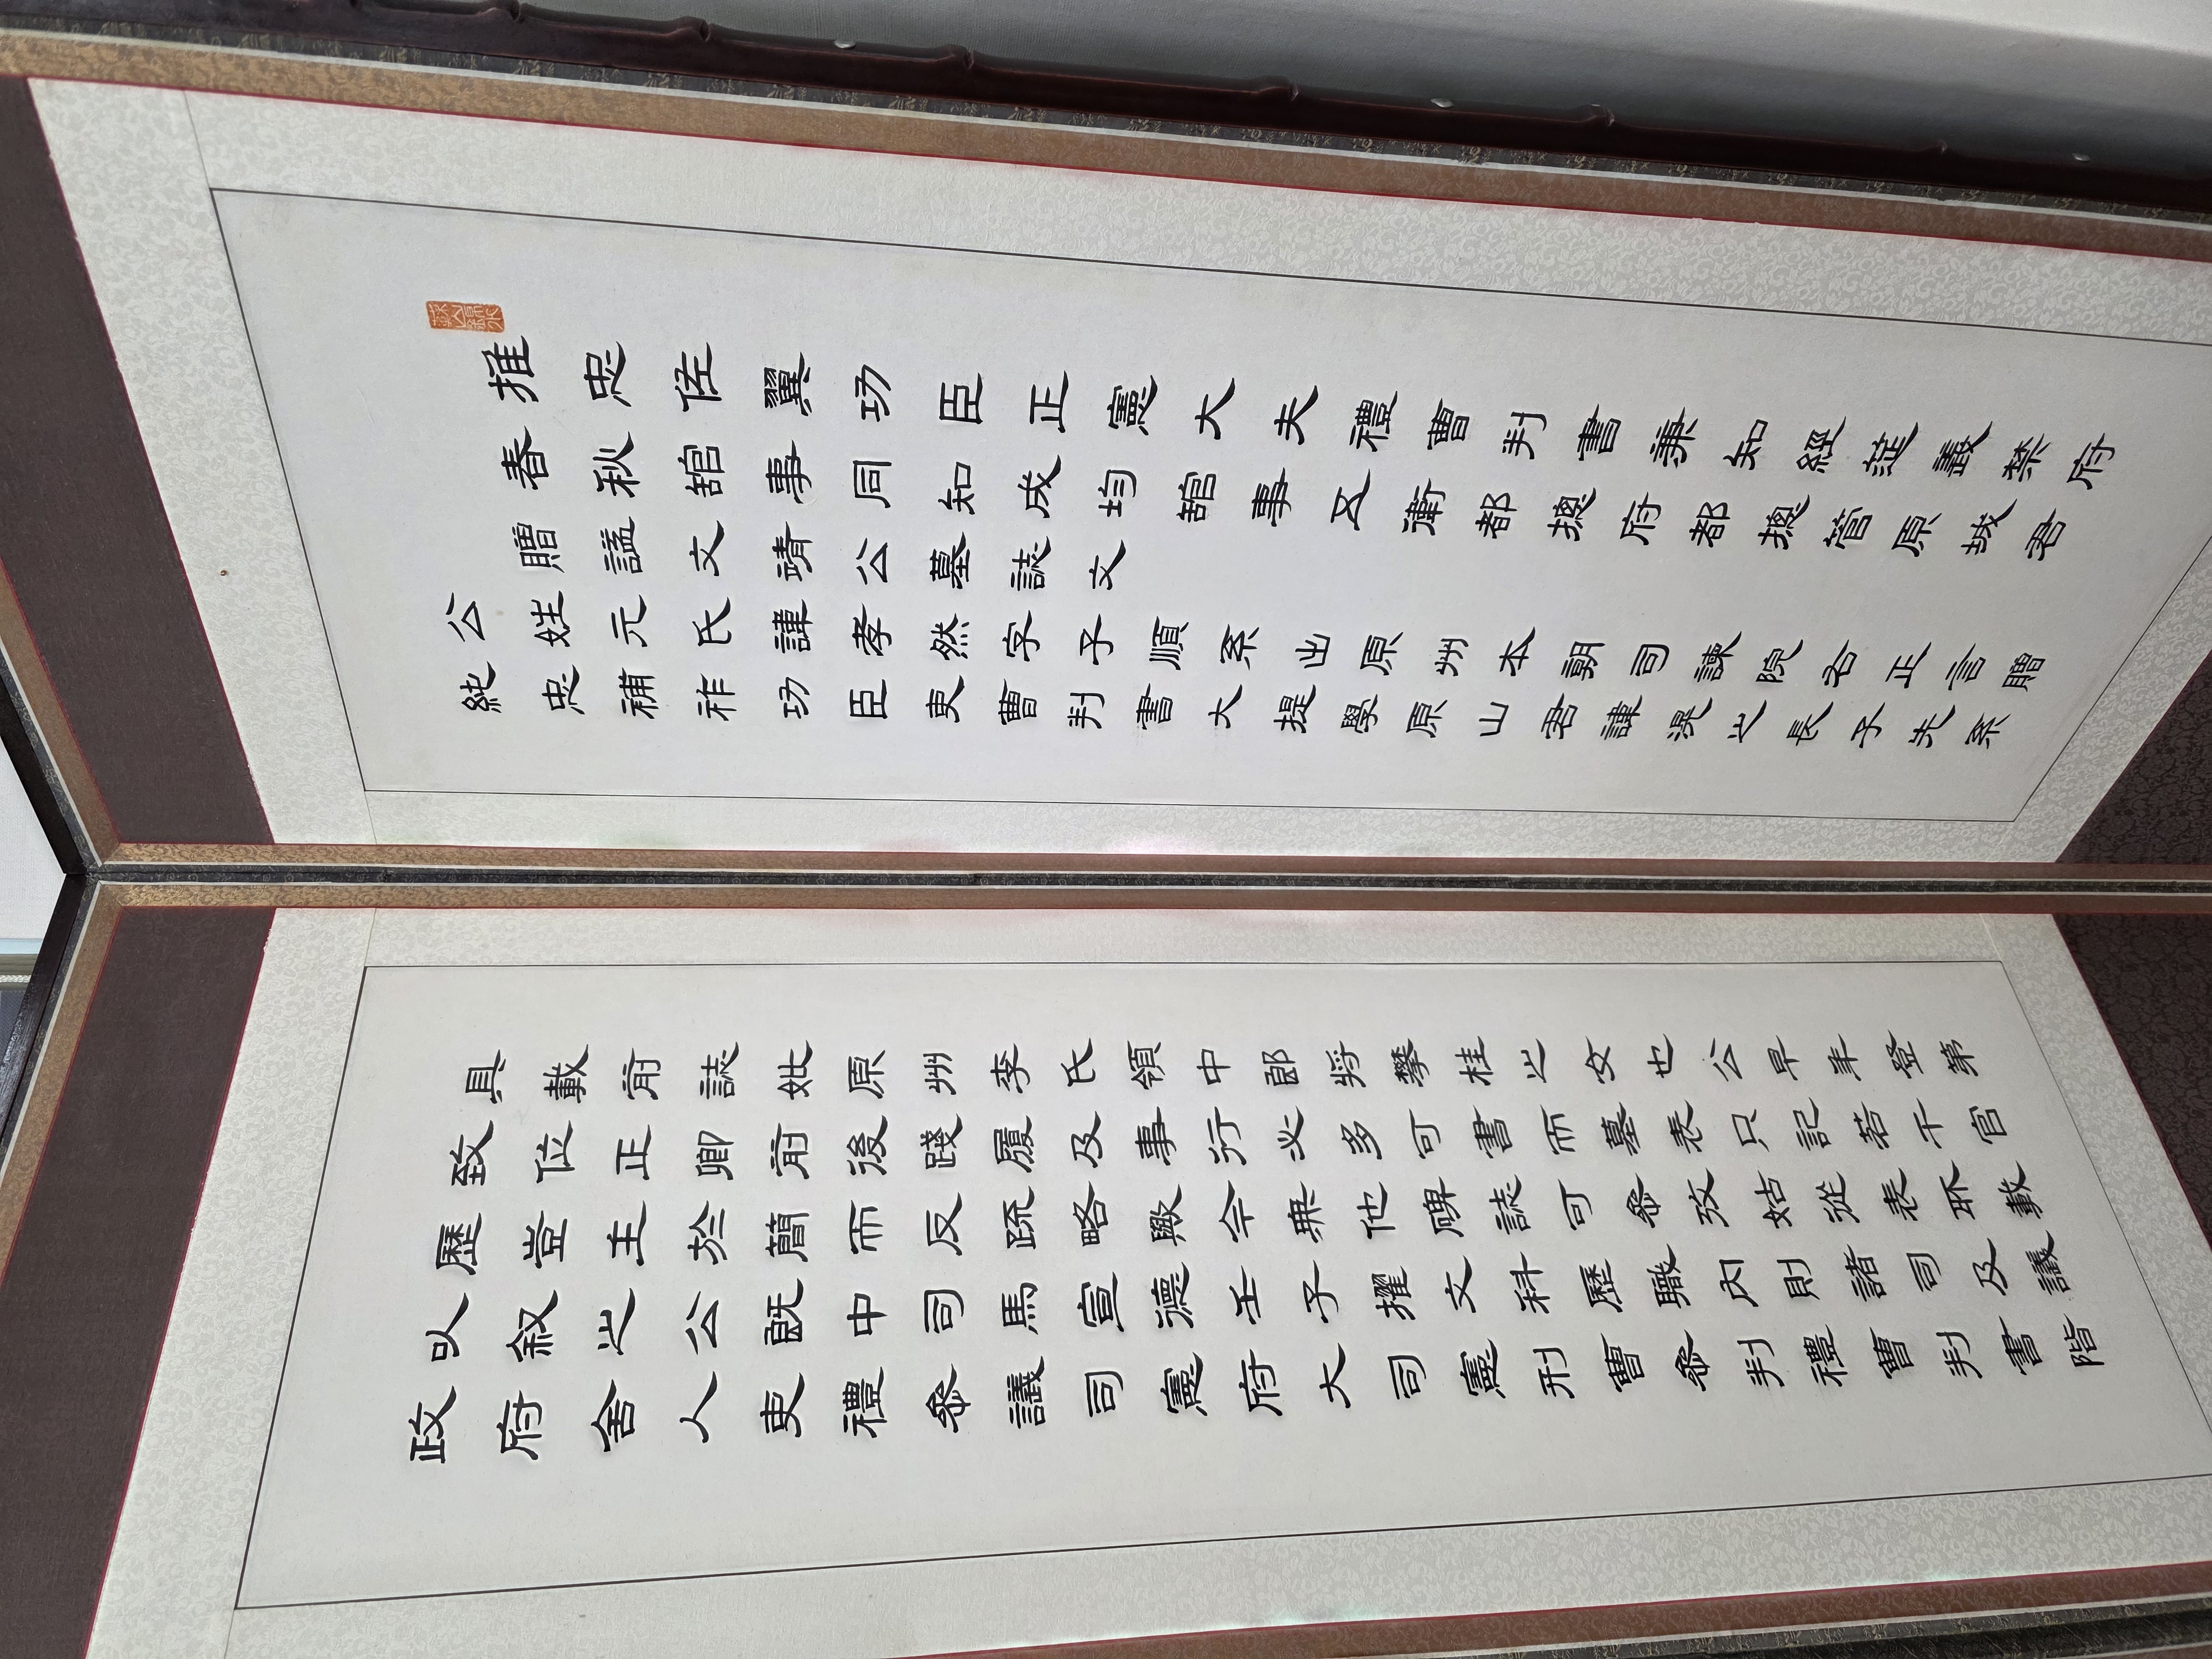 推忠佐翼功臣正憲大夫禮曹判書兼知經筵義禁府
春秋館事同知成均館事五衛都摠府都摠管原城君
贈諡文靖公墓誌文
公姓元氏諱孝然字子順系出原州本朝司諫院右正言贈
純忠補祚功臣吏曹判書大提學原山君諱滉之長子先系
具載前誌妣原州李氏領中郞將攀桂之女也公早年登第
致位正卿前後踐履及事行必多可書而墓表只記若干官
歷豈主於簡而反疏略歟今無他碑誌可參攷姑從表所載
以叙之公旣中司馬宣德壬子擢文科歷職內則諸司及議
政府舍人吏禮參議司憲府大司憲刑曹參判禮曹判書階